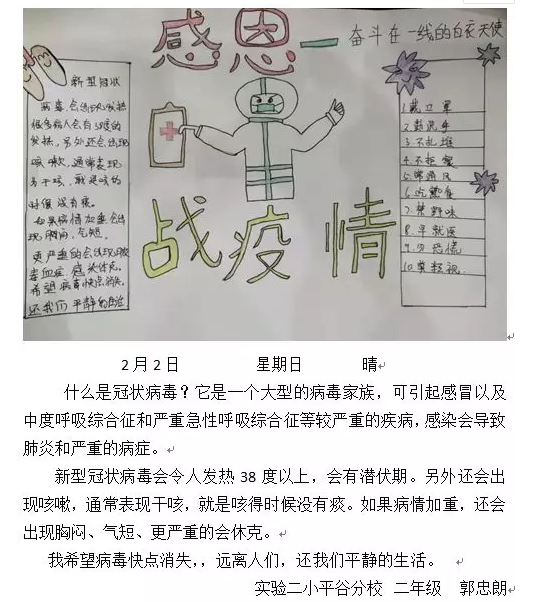 感恩—奋斗在一线的白衣天使
新型冠状
病毒会出现发热
很多病人会有38度的
发热，另外还会出现
咳嗽，通常表现
为干咳，就是咳的
时候没有痰。
如果病情加重会出
现胸闷、气短。
更严重的会出现脓
毒血症、感染休克。
希望病毒快点消失。
还我们平静的生活
1.戴口罩
2.勤洗手
3.不扎堆
4.不握
5.常通风
6.吃熟食
7.禁野味
8.早就医
9.勿恐慌
10.莫轻视
战疫情
2月2日 星期日 晴
什么是冠状病毒？它是一个大型的病毒家族，可引起感冒以及
中度呼吸综合征和严重急性呼吸综合征等较严重的疾病，感染会导致
肺炎和严重的病症。
新型冠状病毒会令人发热 38 度以上，会有潜伏期。另外还会出
现咳嗽，通常表现干咳，就是咳得时候没有痰。如果病情加重，还会
出现胸闷、气短、更严重的会休克。
我希望病毒快点消失，，远离人们，还我们平静的生活。
实验二小平谷分校 二年级 郭忠朗